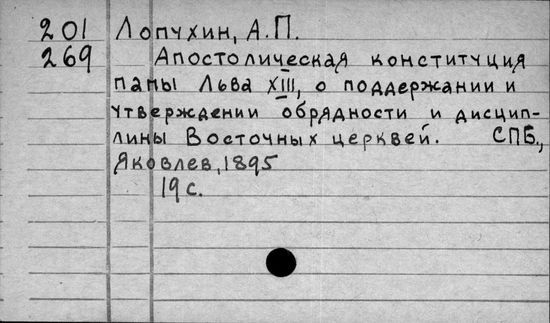 201 Лопухин, А.П.
269 Апостолическая конституция
папы Льва XIII, о поддержании и
утверждении обрядности и дисцип-
лины Восточных церквей. СПБ.,
Яковлев, 1895
19 с.